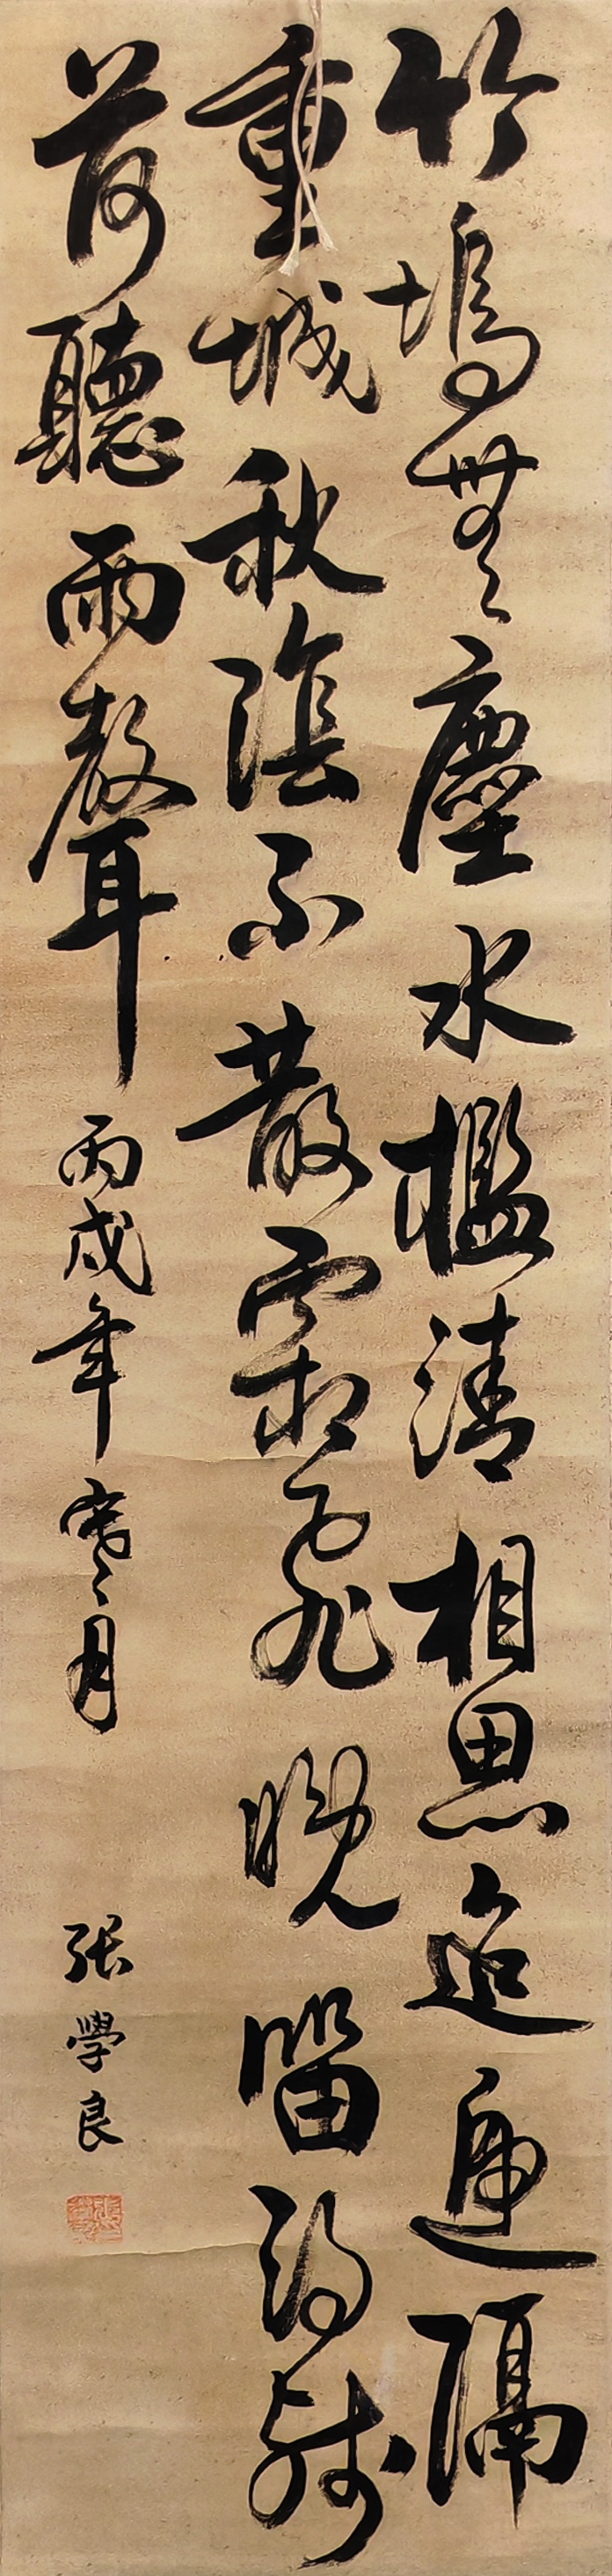 竹塢無塵水檻清相思迢遞隔
重城秋陰不散霜飛晚留得殘
荷聽雨聲 丙戌年寒月 張學良